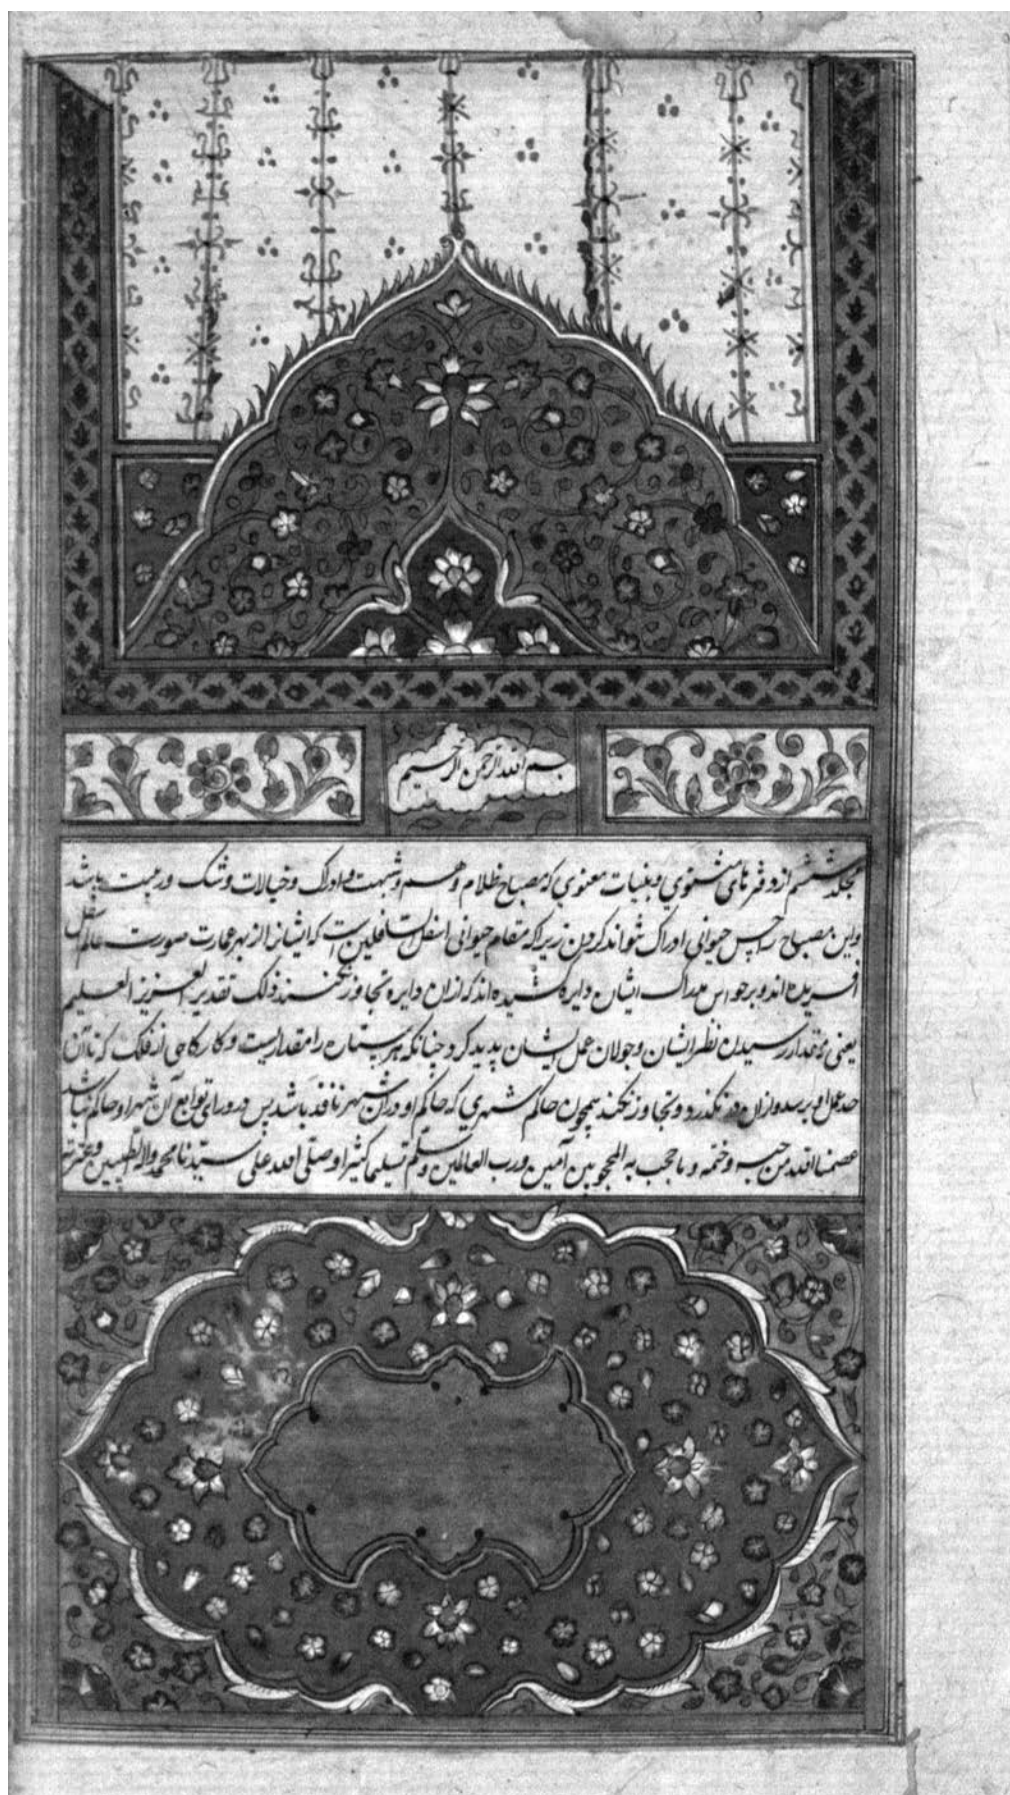 بسم الله الرحمن الرحيم
مجلد ششم از دفترهای مثنوي و بینات معنوي که مصباح ظلام وهم و شبهت و ادراک و خیالات و شک و ریبت باشد
واین مصباح را بحس حیوانی ادراک نتواند کردن زیرا که مقام حیوانی اسفل السافلین است که ایشانرا از بهر عمارت صورت عالم اسفل
افریده اند و بر حواس مدارک ایشان دایره کشیده اند که ازان دایره تجاوز نکنند ذلک تقدیر العزیز العلیم
یعنی مقدار رسیدن نظر ایشان و جولان عمل ایشان پدید کرد چنانکه هر ستاره را مقداریست و کارکاهی از فلک که تا آن
حد عمل او برسد وازان در نکذرد و تجاوز نکند همچون حاکم شهري که حاکم او دران شهر نافذ باشد پس در ورای توابع آن شهر او حاکم نباشد
عصمنا الله من حبسه و ختمه و ما حجب به المحجوبین آمین ورب العالمین وسلم تسلیما کثیرا وصلی الله علی سیدنا محمد واله الطیبین وعترته